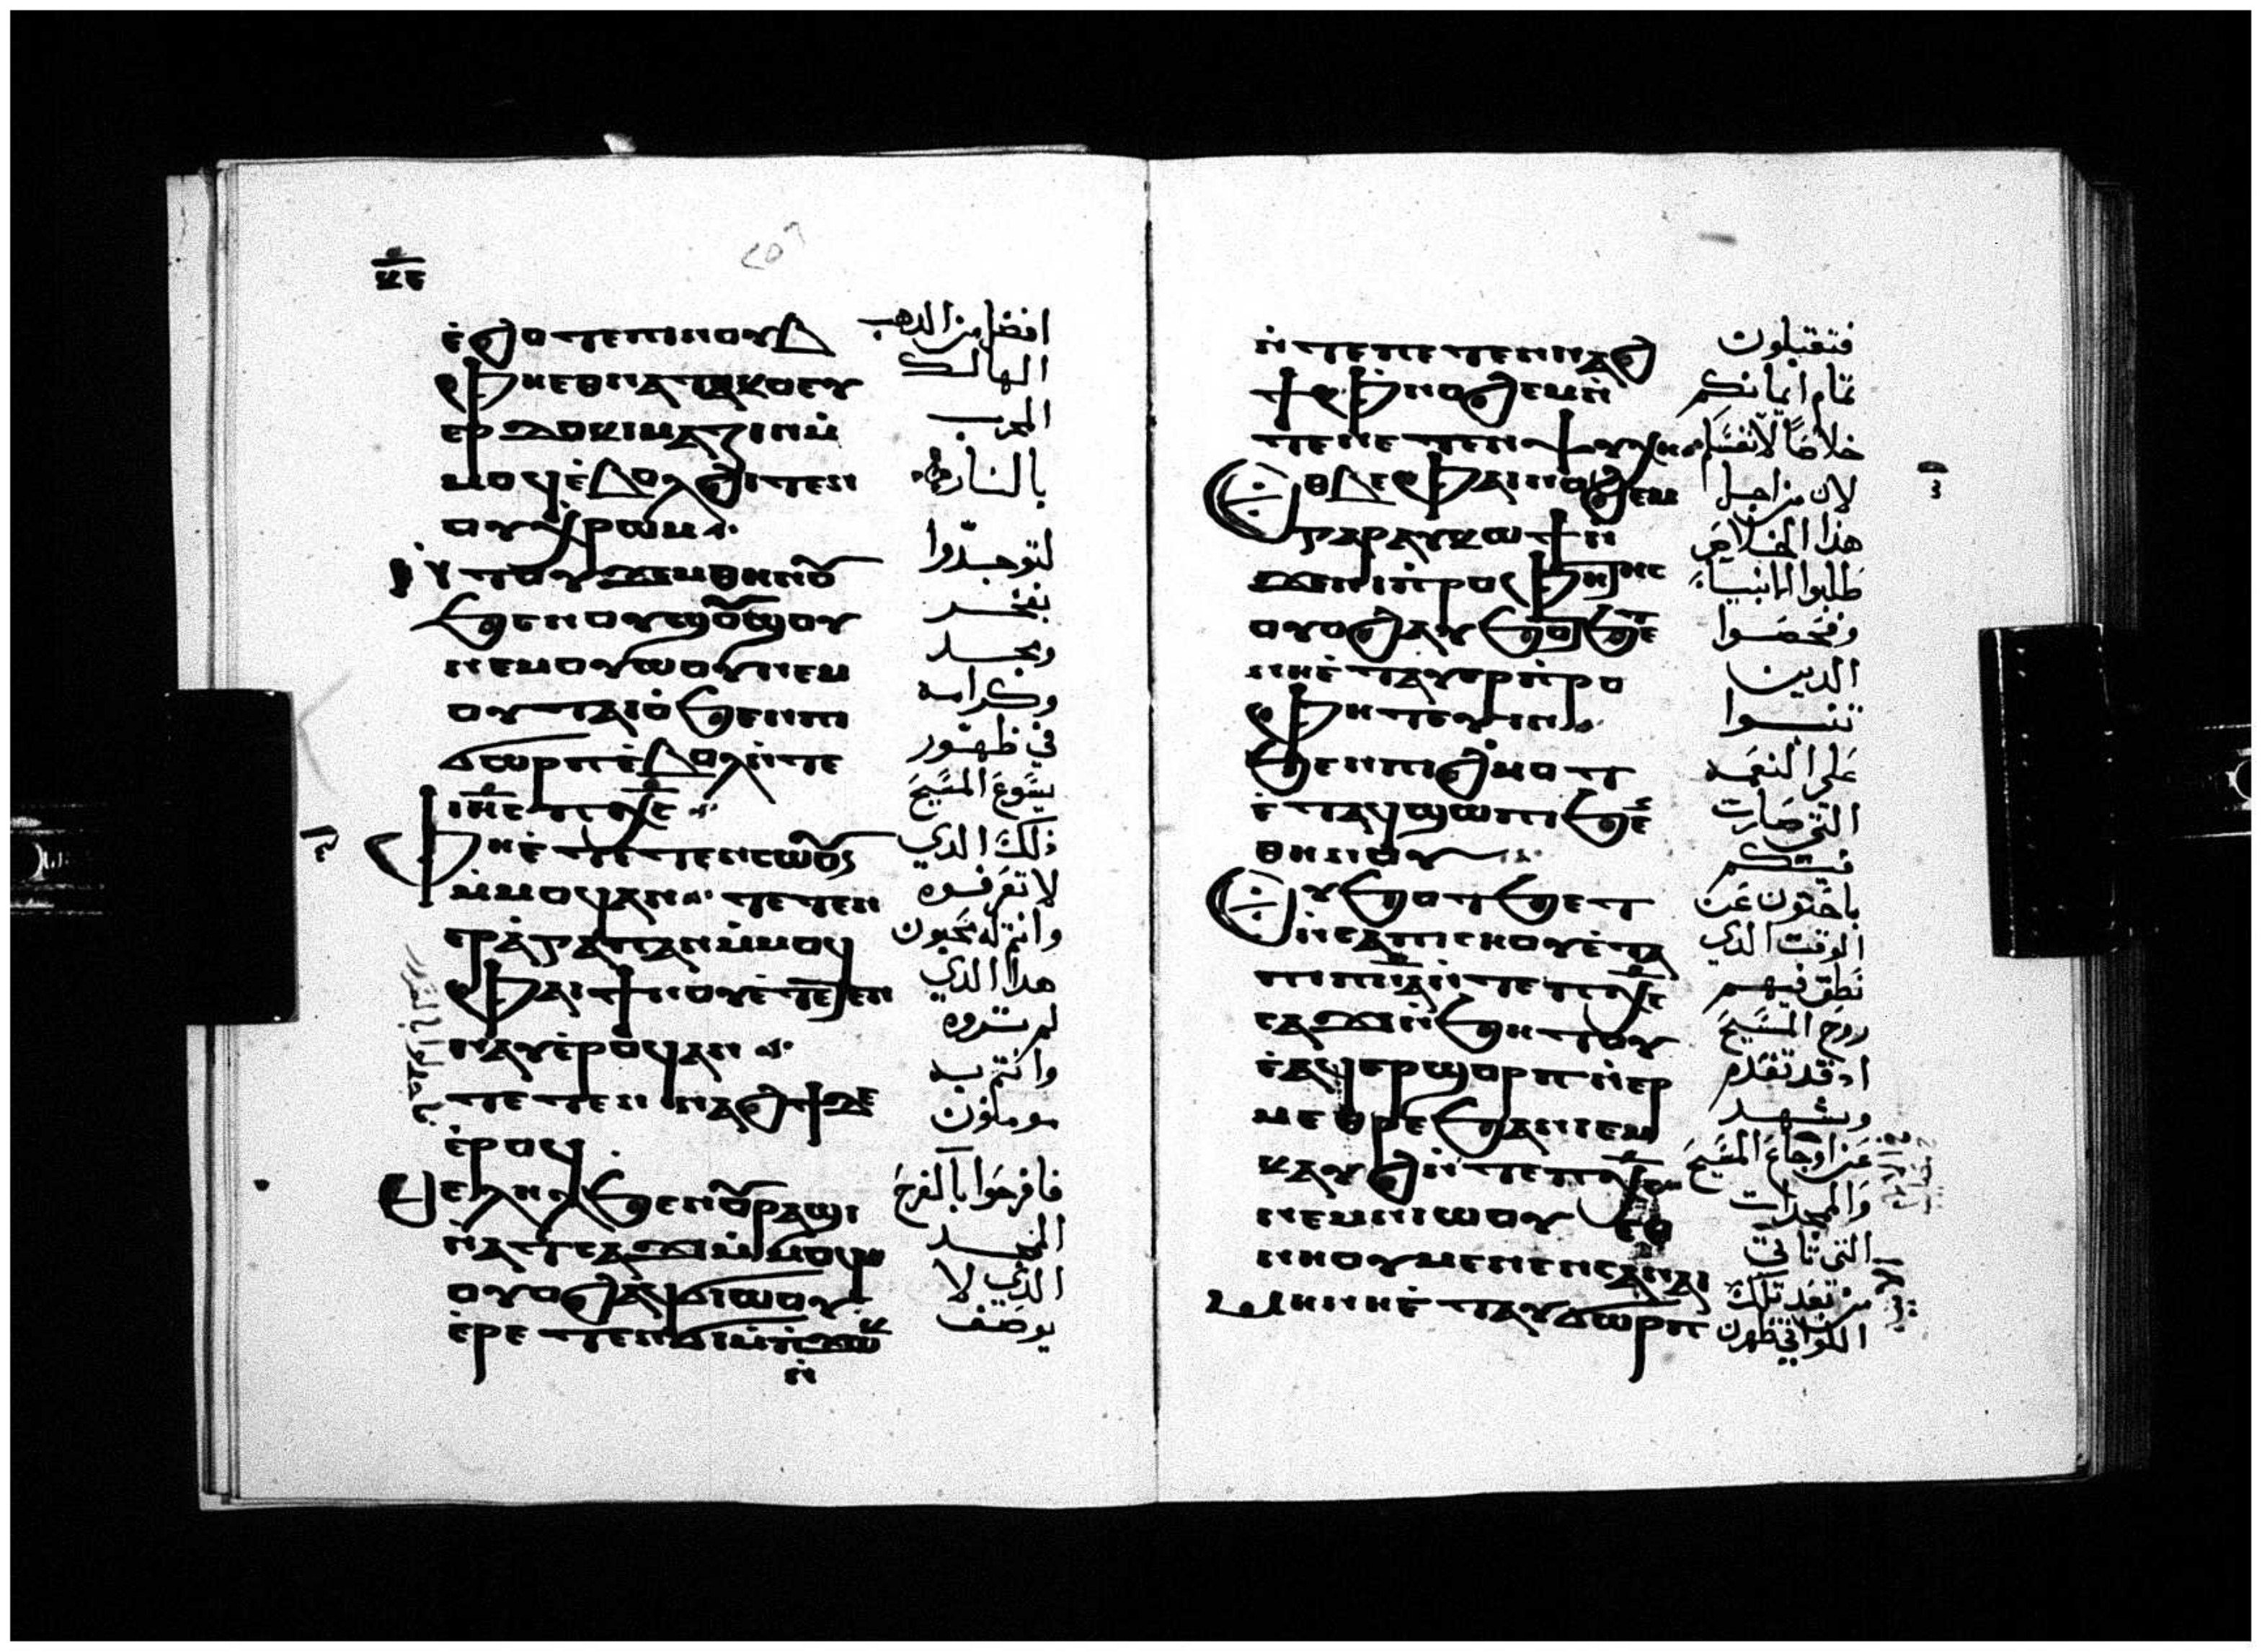 ⲕⲉ
ⲉ̇ϩⲟⲧⲉⲡⲓⲛⲟⲩⲃ
ⲫⲏⲉⲑⲛⲁⲧⲁⲕⲟⲉⲩ
ⲉⲣⲇⲟⲕⲓⲙⲁⲍⲓⲛⲙ̇
ⲙⲟϥⲉ̇ⲃⲟⲗϩⲓⲧⲉⲛ
ⲟⲩⲭ̇ⲣⲱⲙ
ⲛ̇ⲧⲟⲩϫⲉⲙⲑⲏⲛⲟⲩ
ϧⲉⲛⲟⲩϣⲟⲩϣⲟⲩ
ⲛⲉⲙⲟⲩⲱⲟⲩⲛⲉⲙ
ⲟⲩⲧⲁⲓⲟ̇ϧⲉⲛⲡⲓ
ϭⲱⲣⲡⲉ̇ⲃⲟⲗⲛ̇ⲧⲉ
ⲓⲏⲥⲡⲭⲥ
ⲫⲏⲉ̇ⲧⲉⲧⲉⲛⲥⲱⲟⲩⲛ
ⲙ̇ⲙⲟϥⲁⲛ ⲧⲉⲧⲉⲛ
ⲉⲣⲁ̇ⲅⲁⲡⲁⲛⲙ̇ⲙⲟϥ
ⲫⲁⲓϯⲛⲟⲩⲉ̇ⲧⲉⲧⲉⲛ
ⲛⲁⲩⲉ̇ⲣⲟϥⲁⲛ
ⲧⲉⲧⲉⲛⲛⲁϩϯⲇⲉ
ⲉ̇ⲣⲟϥ
ⲑⲉⲗⲏⲗϧⲉⲛⲟⲩⲣⲁϣⲓ
ⲛ̇ⲁⲧⲥⲁϫⲓⲙ̇ⲙⲟϥ
ⲟⲩⲟϩⲁϥϭⲓⲱⲟⲩ
ⲉ̇ⲣⲉⲧⲉⲛϭⲓⲙ̇ⲡ̇ϫⲱⲕ
ⲛ̇
افضل من الذهب
الهالك
المجرب
بالنار
لتوجدوا
بفخر
ومجد
وكرامه
في ظهور
يسوع المسيح
ذلك الذي
لا تعرفوه
وانتم له تحبون
هدا الدي
لم تروه
وانتم به
مومنون
فافرحوا بالفرح
المجد
الذي لا
يوصف
ⲛ̇ⲧⲉⲡⲉⲧⲉⲛⲛⲁϩ
ϯⲫⲛⲟϩⲉⲙⲛ̇
ⲧⲉⲛⲉⲧⲉⲛⲯⲩⲭⲏ
ⲉⲑⲃⲉⲫⲁⲓⲛⲟϩⲉⲙ
ⲅⲁⲣⲁⲩⲕⲱϯⲛ
ϫⲉⲛⲓⲡ̇ⲣⲟⲫⲏⲧⲏⲥ
ⲟⲩⲟϩⲁⲩϧⲟⲧϧⲉⲧ
ⲛⲏⲉ̇ⲧⲁⲩⲉⲣⲡ̇ⲣⲟ
ⲫⲏⲧⲉⲩⲓⲛ
ϧⲉⲛⲡⲓϩ̇ⲙⲟⲧ
ⲉ̇ⲧⲁϥϣⲱⲡⲓϧⲉⲛ
ⲑⲏⲛⲟⲩ
ⲉⲩϧⲟⲧϧⲉⲧ
ⲛ̇ⲥⲁⲡⲓⲥⲏⲟⲩⲉ̇ⲧⲁ
ⲡⲓⲡⲛⲁⲛ̇ⲧⲉⲡⲭⲥ
ⲥⲁϫⲓⲛ̇ϧⲏⲧⲟⲩ
ⲉ̇ⲁϥⲉⲣϣⲟⲣⲡⲛ̇ⲉⲣ
ⲙⲉⲑⲣⲉϧⲁⲛⲓⲉⲙ
ⲕⲁⲩϩⲛ̇ⲧⲉⲡⲭⲥ
ⲛⲉⲙⲛⲓⲱⲟⲩ ⲉⲑ
ⲛⲏⲟⲩⲙⲉⲛⲉⲛⲥⲁⲛⲁⲓ
ⲛⲏⲉ̇ⲧⲁⲩϭⲱⲣⲡ
فتقبلون
تمام ايمانكم
خلاصا لانفسكم
لان من اجل
هذا الخلاص
طلبوا الانبياء
وفحصوا
الدين
تنبوا
على النعمه
التي صارت
فيكم
باحثون عن
الوقت الذي
نطق فيهم
روح المسيح
اد قد تقدم
وشهد
عن اوجاع المسيح
والمجدات
التي تاتي
من بعد تلك